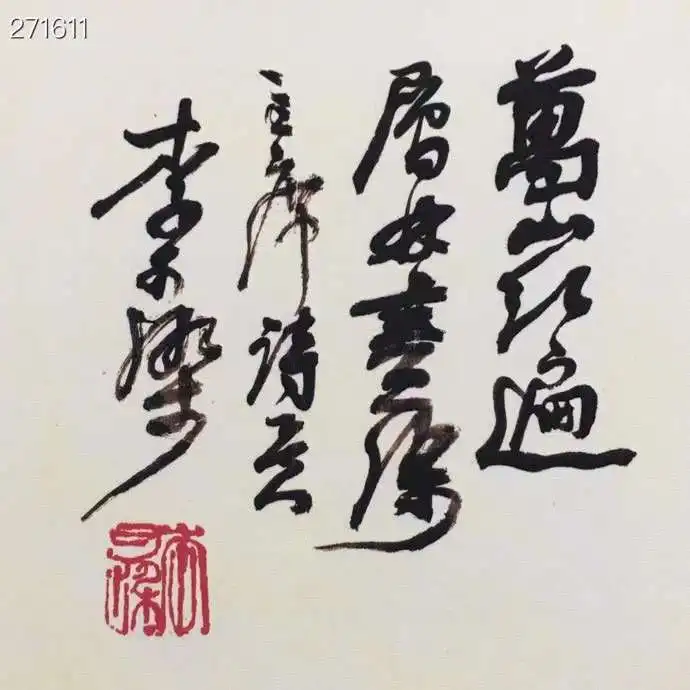 271611
萬山红遍
層林盡染
主席詩意
李可染
李可染